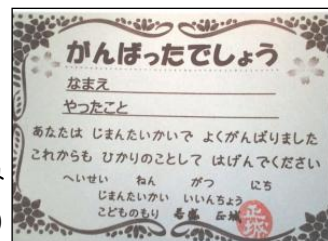 がんばったでしょう
なまえ
やったこと
あなたは じまんたいかいで よくがんばりました
これからも ひかりのことして はげんでください
へいせい ねん がつ にち
じまんたいかい いいんちょう
こどものもり
正城